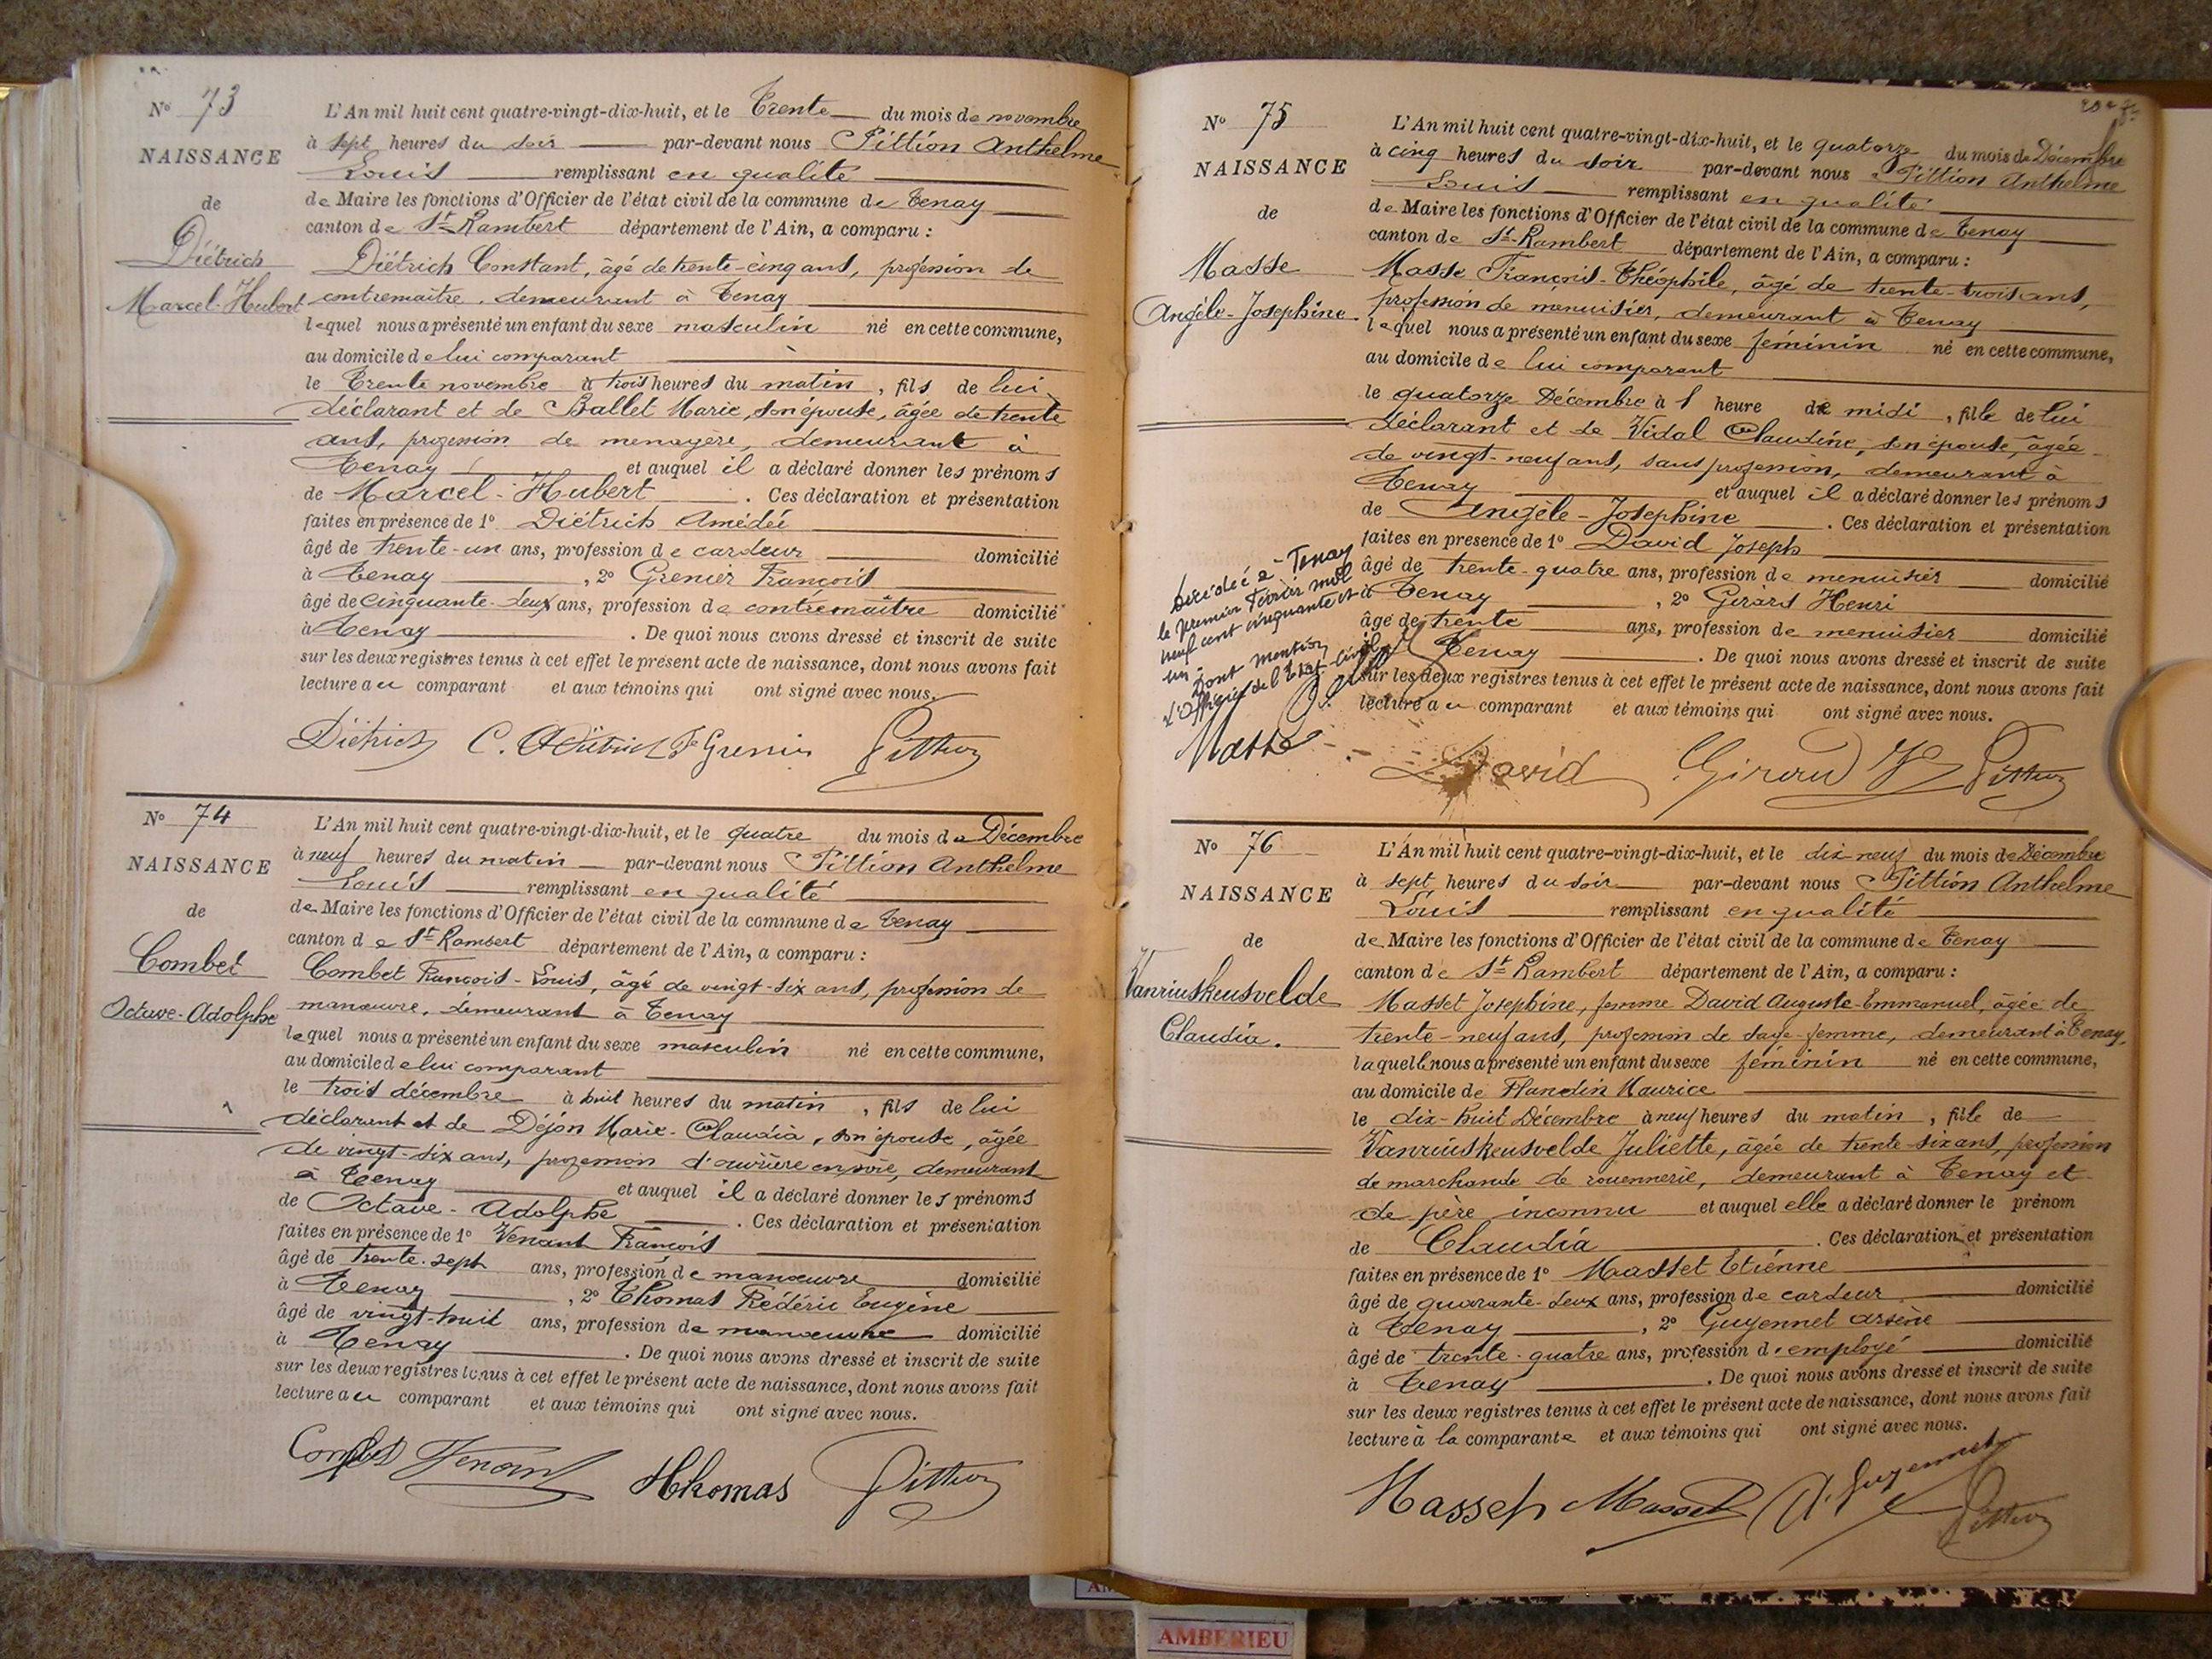 N° 73
NAISSANCE
de
Diétrich
Marcel-Hubert
L'An mil huit cent quatre-vingt-dix-huit, et le Trente du mois de novembre
à sept heures du soir par-devant nous Pittion Anthelme
Louis remplissant en qualité
de Maire les fonctions d'Officier de l'état civil de la commune de Tenay
canton de St Rambert département de l'Ain, a comparu :
Diétrich Constant, âgé de trente-cinq ans, profession de
contremaître, demeurant à Tenay
lequel nous a présenté un enfant du sexe masculin né en cette commune,
au domicile de lui comparant
le Trente novembre à trois heures du matin, fils de lui
déclarant et de Ballet Marie, son épouse, âgée de trente
ans, profession de ménagère, demeurant à
Tenay et auquel il a déclaré donner les prénoms
de Marcel-Hubert. Ces déclaration et présentation
faites en présence de 1° Diétrich Amédée
âgé de trente-un ans, profession de cardeur domicilié
à Tenay, 2° Grenier François
âgé de cinquante-deux ans, profession de contremaître domicilié
à Tenay. De quoi nous avons dressé et inscrit de suite
sur les deux registres tenus à cet effet le présent acte de naissance, dont nous avons fait
lecture au comparant et aux témoins qui ont signé avec nous.
Diétrich C. A Diétrich Fs Grenier Pittion
N° 74
NAISSANCE
de
Combet
Octave-Adolphe
L'An mil huit cent quatre-vingt-dix-huit, et le quatre du mois de Décembre
à neuf heures du matin par-devant nous Pittion Anthelme
Louis remplissant en qualité
de Maire les fonctions d'Officier de l'état civil de la commune de Tenay
canton de St Rambert département de l'Ain, a comparu :
Combet François-Louis, âgé de vingt-six ans, profession de
manœuvre, demeurant à Tenay
lequel nous a présenté un enfant du sexe masculin né en cette commune,
au domicile de lui comparant
le trois décembre à huit heures du matin, fils de lui
déclarant et de Déjon Marie-Claudia, son épouse, âgée
de vingt-six ans, profession d'ouvrière en soie, demeurant
à Tenay et auquel il a déclaré donner les prénoms
de Octave-Adolphe. Ces déclaration et présentation
faites en présence de 1° Venant François
âgé de trente-sept ans, profession de manœuvre domicilié
à Tenay, 2° Thomas Frédéric Eugène
âgé de vingt-huit ans, profession de manœuvre domicilié
à Tenay. De quoi nous avons dressé et inscrit de suite
sur les deux registres tenus à cet effet le présent acte de naissance, dont nous avons fait
lecture au comparant et aux témoins qui ont signé avec nous.
Combet Venant Thomas Pittion
N° 75
NAISSANCE
de
Masse
Angèle-Josephine.
L'An mil huit cent quatre-vingt-dix-huit, et le quatorze du mois de Décembre
à cinq heures du soir par-devant nous Pittion Anthelme
Louis remplissant en qualité
de Maire les fonctions d'Officier de l'état civil de la commune de Tenay
canton de St Rambert département de l'Ain, a comparu :
Masse François-Théophile, âgé de trente-trois ans,
profession de menuisier, demeurant à Tenay
lequel nous a présenté un enfant du sexe féminin né en cette commune,
au domicile de lui comparant
le quatorze Décembre à 1 heure de midi, fille de lui
déclarant et de Vidal Claudine, son épouse, âgée
de vingt-neuf ans, sans profession, demeurant à
Tenay et auquel il a déclaré donner les prénoms
de Angèle-Josephine. Ces déclaration et présentation
faites en présence de 1° David Joseph
âgé de trente-quatre ans, profession de menuisier domicilié
à Tenay, 2° Girard Henri
âgé de trente ans, profession de menuisier domicilié
à Tenay. De quoi nous avons dressé et inscrit de suite
sur les deux registres tenus à cet effet le présent acte de naissance, dont nous avons fait
lecture au comparant et aux témoins qui ont signé avec nous.
Décédée à Tenay
le premier Février mil
neuf cent cinquante et
un Dont mention
L'Officier de l'Etat-Civil
Masse David Giraud Pittion
N° 76
NAISSANCE
de
Vanriuskeusvelde
Claudia.
L'An mil huit cent quatre-vingt-dix-huit, et le dix neuf du mois de Décembre
à sept heures du soir par-devant nous Pittion Anthelme
Louis remplissant en qualité
de Maire les fonctions d'Officier de l'état civil de la commune de Tenay
canton de St Rambert département de l'Ain, a comparu :
Masset Josephine, femme David Auguste-Emmanuel, âgée de
trente-neuf ans, profession de sage-femme, demeurant à Tenay,
laquelle nous a présenté un enfant du sexe féminin né en cette commune,
au domicile de Flandin Maurice
le dix-huit Décembre à neuf heures du matin, fille de
Vanriuskeusvelde Juliette, âgée de trente-six ans, profession
de marchande de rouennerie, demeurant à Tenay et
de père inconnu et auquel elle a déclaré donner le prénom
de Claudia. Ces déclaration et présentation
faites en présence de 1° Masset Etienne
âgé de quarante-deux ans, profession de cardeur domicilié
à Tenay, 2° Guyennet Arsène
âgé de trente-quatre ans, profession d'employé domicilié
à Tenay. De quoi nous avons dressé et inscrit de suite
sur les deux registres tenus à cet effet le présent acte de naissance, dont nous avons fait
lecture à la comparante et aux témoins qui ont signé avec nous.
Masset Masset A. Guyennet Pittion
AMBERIEU